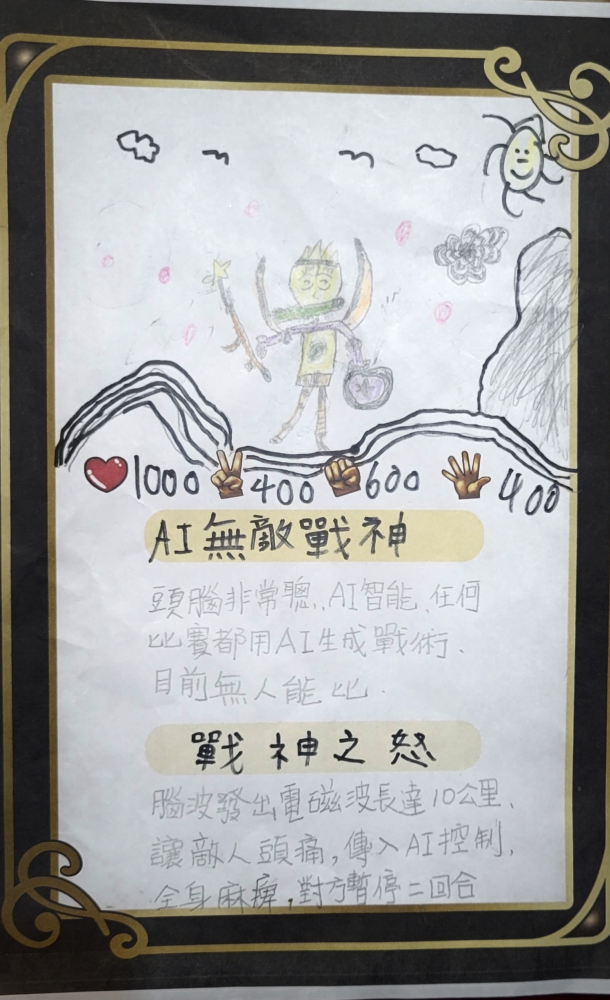 1000 400 600 400
AI無敵戰神
頭腦非常聰,AI智能,任何
比賽都用AI生成戰術.
目前無人能比.
戰神之怒
腦波發出電磁波長達10公里,
讓敵人頭痛,傳入AI控制,
全身麻痺,對方暫停二回合